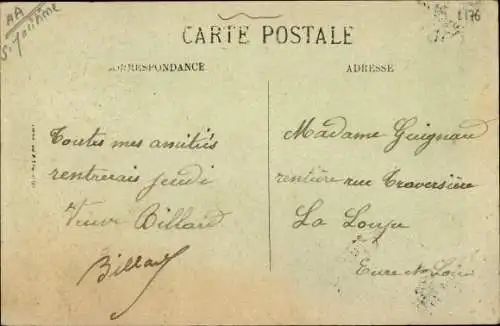 AA
CARTE POSTALE
CORRESPONDANCE
ADRESSE
Toutes mes amitiés
rentrerais jeudi
Veuve Billard
Billard
Madame Guignard
rentière rue Traversière
La Loupe
Eure et Loir